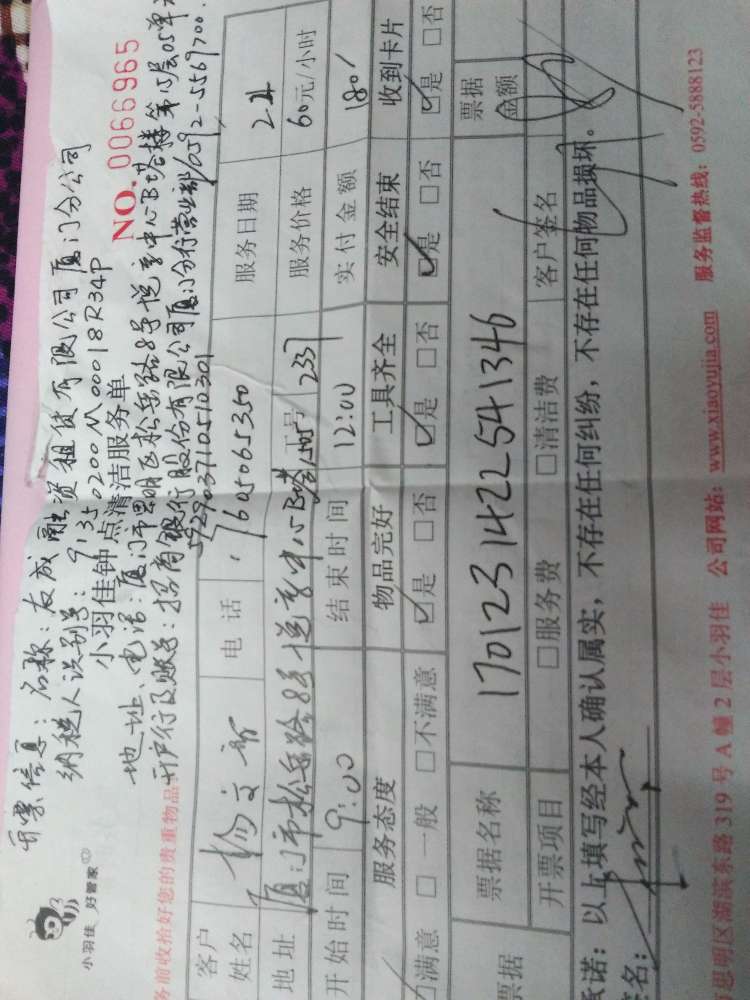 小羽佳 好管家
开票信息：名称：友成融资租赁有限公司厦门分公司
纳税人识别号：91350200M00018R34P
小羽佳钟点清洁服务单
NO. 0066965
地址、电话：厦门市思明区松岳路8号悦享中心B塔楼第15层05单元
0592-5569700
开户行及账号：招商银行股份有限公司厦门分行营业部
592903710510301
务前收拾好您的贵重物品
客户姓名 杨文 电话 服务日期
地址 厦门市松岳路8号悦享中心B塔1505 工号 2337 服务价格 60元/小时
开始时间 9:00 结束时间 12:00 实付金额 180
服务态度 物品完好 工具齐全 安全结束 收到卡片
满意 □一般 □不满意 ☑是 □否 ☑是 □否 ☑是 □否 ☑是 □否
票据 票据名称 1701231422541346 票据金额
开票项目 □服务费 □清洁费 客户签名
承诺：以上填写经本人确认属实，不存在任何纠纷，不存在任何物品损坏。
签名：
思明区湖滨东路319号A幢2层小羽佳 公司网站：www.xiaoyujia.com 服务监督热线：0592-5888123